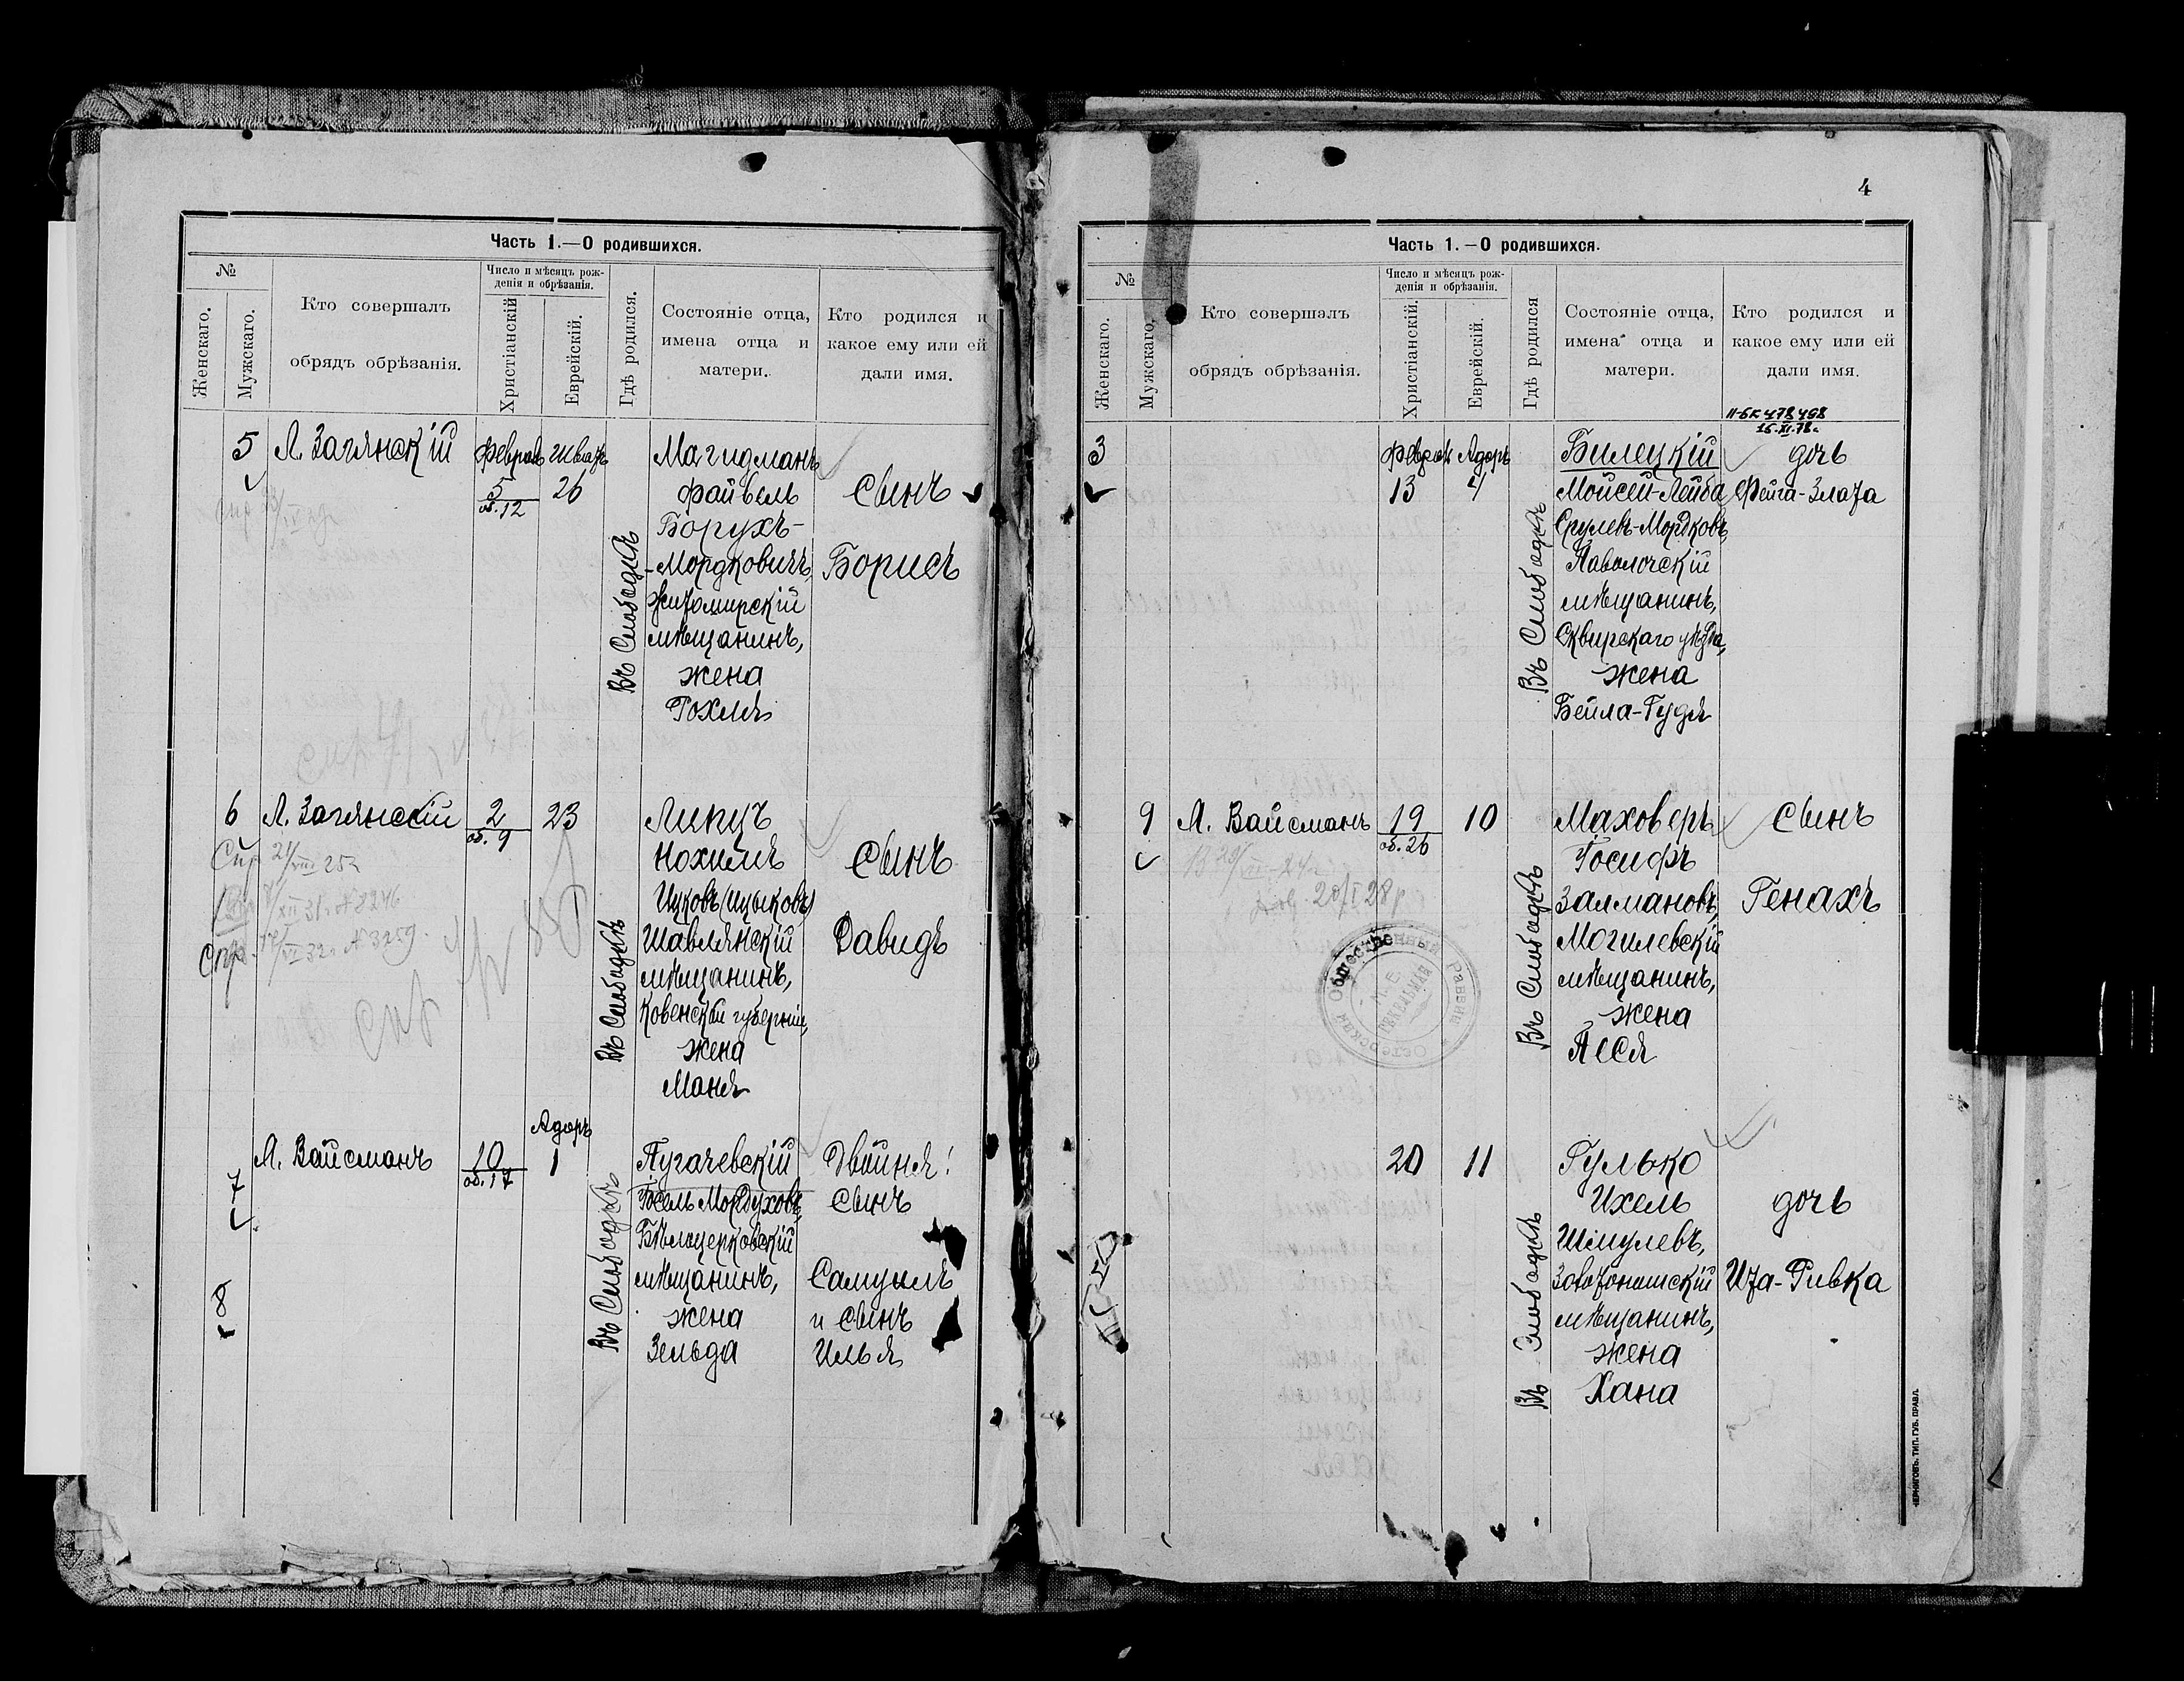 Часть 1.—О родившихся.
№
Женскаго.
Мужскаго.
Кто совершалъ
обрядъ обрѣзанія.
Число и мѣсяцъ рож-
денія и обрѣзанія.
Христіанскій
Еврейскій.
Гдѣ родился.
Состояніе отца,
имена отца и
матери.
Кто родился и
какое ему или ей
дали имя.
5
Л. Заглянскій
Феврал
5
об. 12
Шватъ
26
Въ Слободкѣ
Магидманъ
Файвель
Борухъ-
-Мордковичъ,
Житомирскій
мѣщанинъ,
жена
Рохля
Сынъ
Борисъ
6
Л. Заглянскій
2
об. 9
23
Въ Слободкѣ
Липуъ
Нохимъ
Ицковъ (Ицыковъ)
Шавлянскій
мѣщанинъ,
Ковенской губерніи,
жена
Маня
Сынъ
Давидъ
7
8
Л. Вайсманъ
10
об. 17
Адоръ
1
Въ Слободкѣ
Пугачевскій
Іосель Мордуховъ,
Бѣлоцерковскій
мѣщанинъ,
жена
Зельда
Двойня!
Сынъ
Самуилъ
и Сынъ
Илья
4
Часть 1.—О родившихся.
№
Женскаго.
Мужскаго.
Кто совершалъ
обрядъ обрѣзанія.
Число и мѣсяцъ рож-
денія и обрѣзанія.
Христіанскій.
Еврейскій.
Гдѣ родился
Состояніе отца,
имена отца и
матери.
Кто родился и
какое ему или ей
дали имя.
II-БК 478498
15.XI.78г.
3
Феврал
13
Адоръ
4
Въ Слободкѣ
Билецкій
Мойсей-Лейба
Срулевъ-Мордковъ,
Паволочскій
мѣщанинъ,
Сквирскаго уѣзда,
жена
Бейла-Гудя
дочь
Фейга-Злата
9
Л. Вайсманъ
19
об. 26
10
Въ Слободкѣ
Маховеръ
Іосифъ
Залмановъ,
Могилевскій
мѣщанинъ,
жена
Песя
Сынъ
Генахъ
20
11
Въ Слободкѣ
Гулько
Ихель
Шмулевъ,
Золотоношскій
мѣщанинъ,
жена
Хана
дочь
Ита-Ривка
Остерскій Общественный Раввинъ
ЧЕРНИГОВЪ. ТИП. ГУБ. ПРАВЛ.